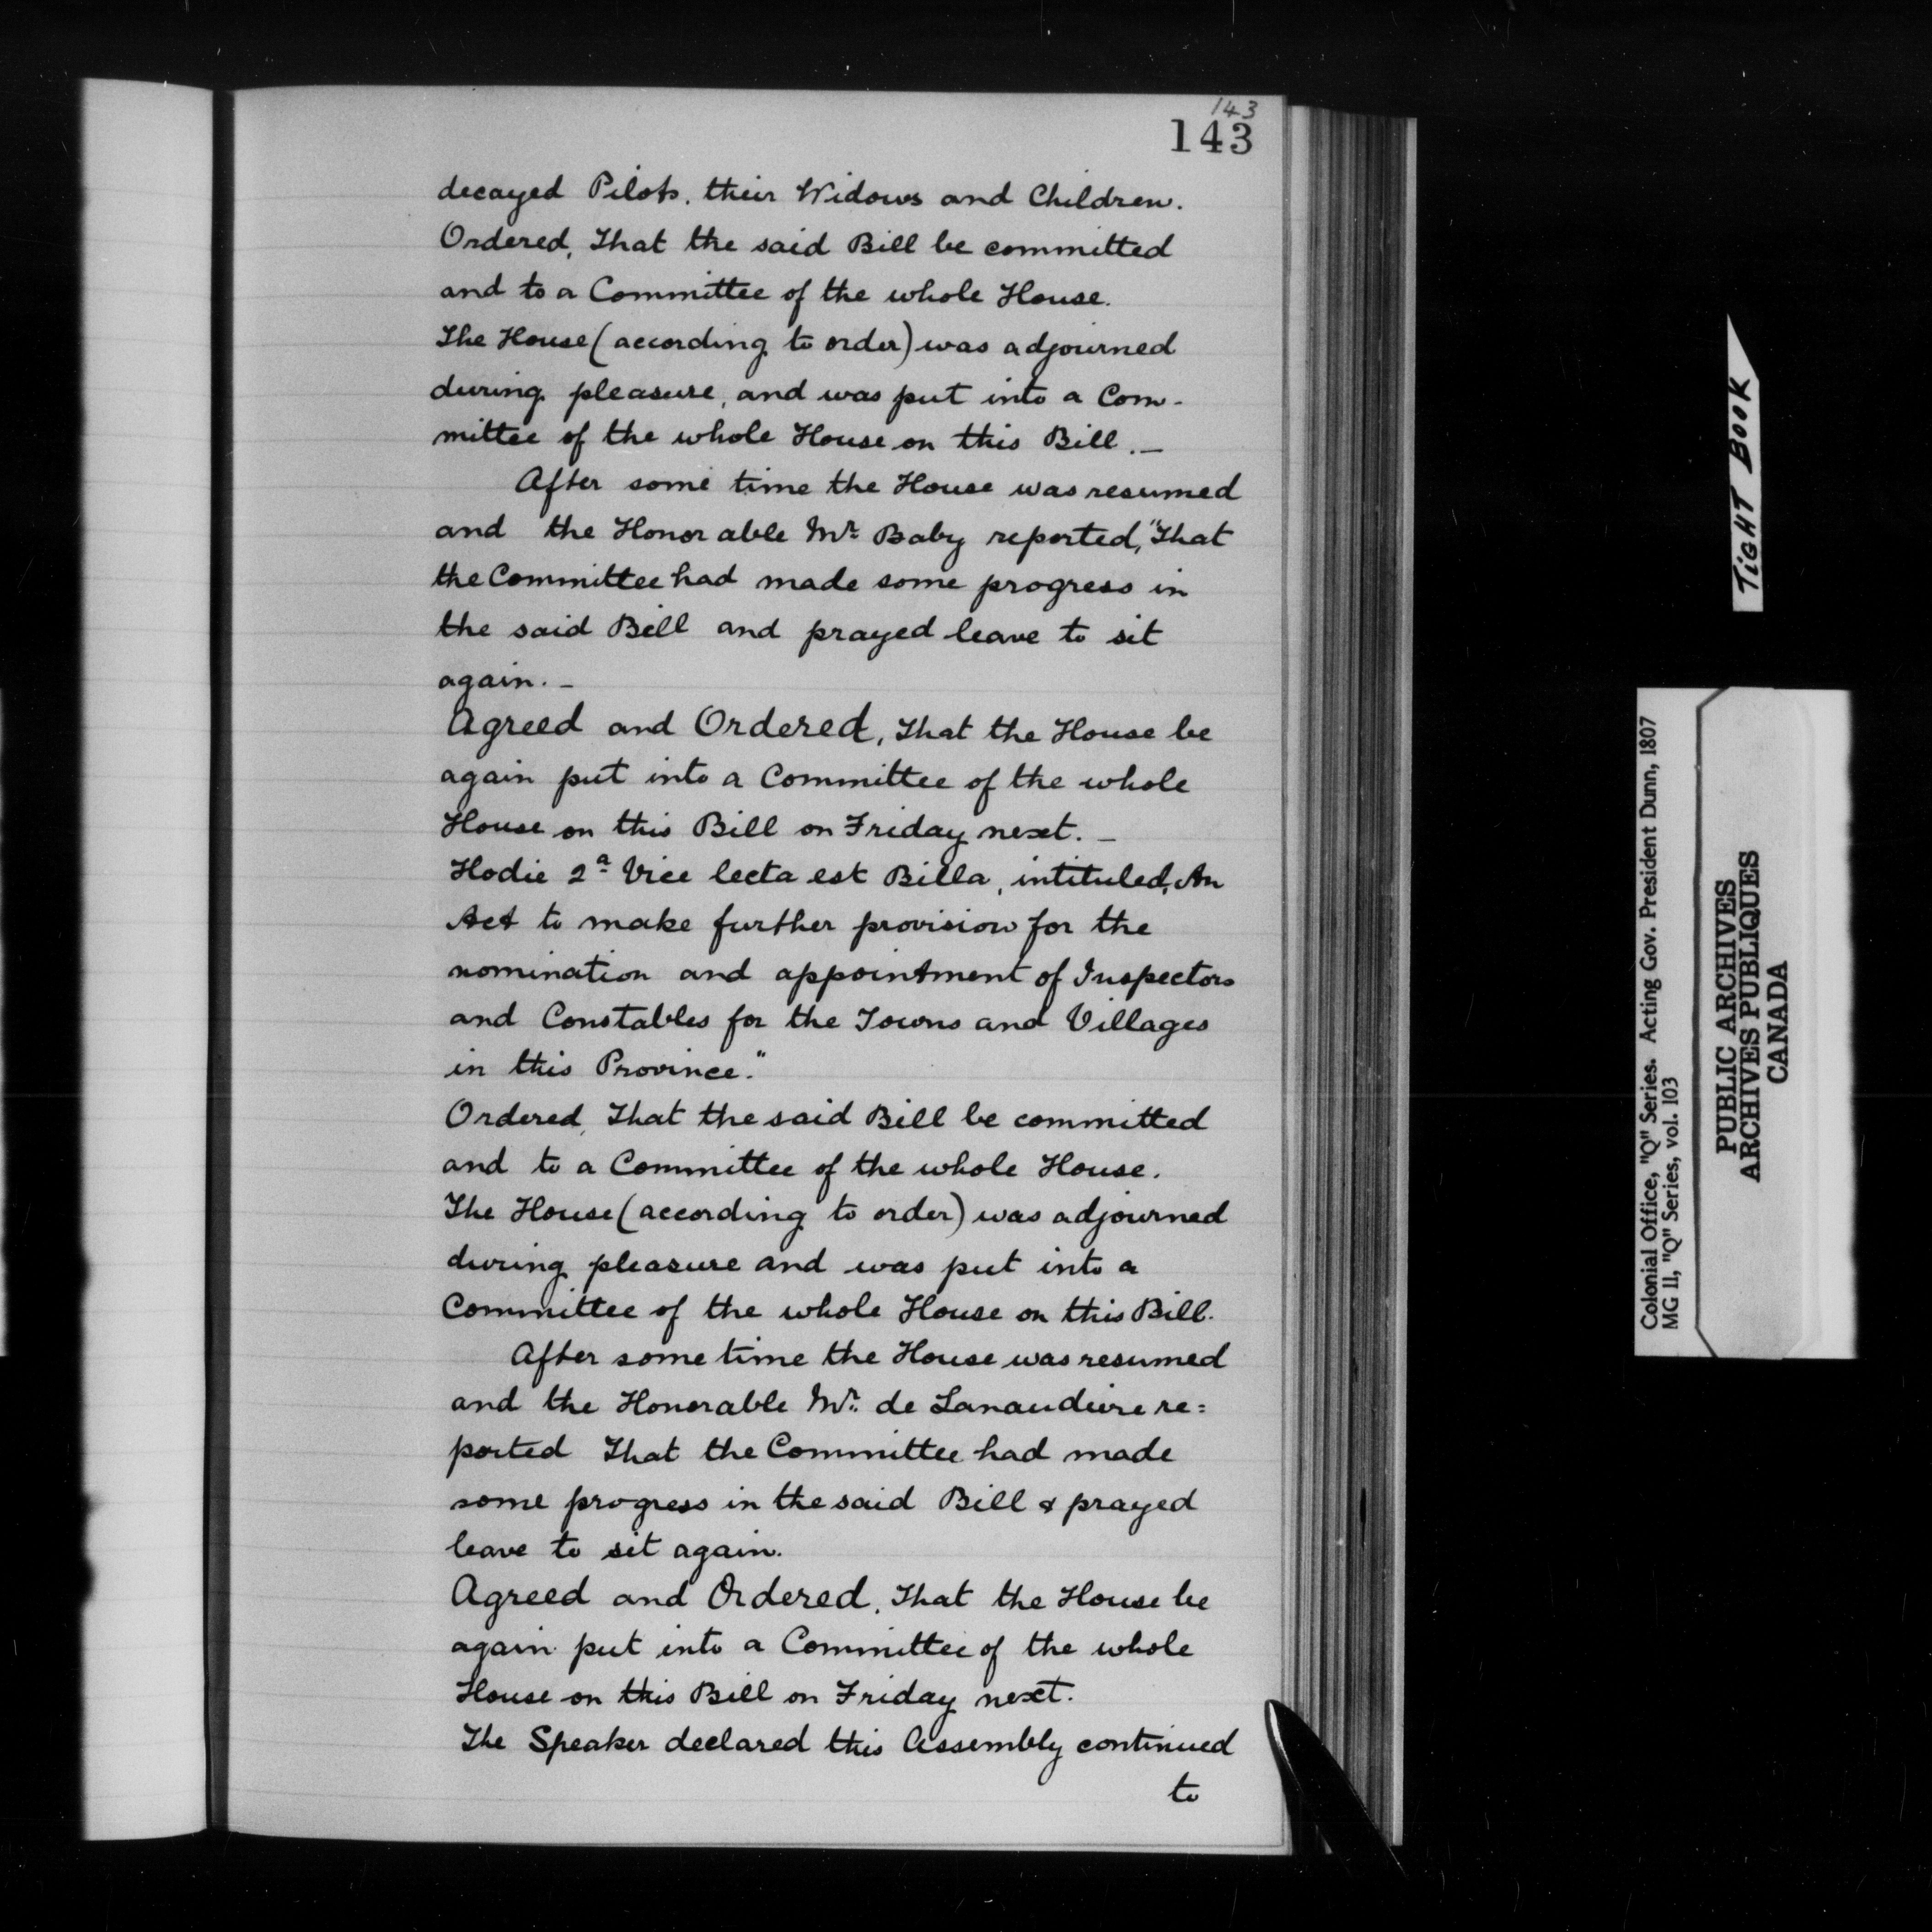 143
143
decayed Pilots, their Widows and Children.
Ordered, That the said Bill be committed
and to a Committee of the whole House.
The House (according to order) was adjourned
during pleasure, and was put into a Com-
mittee of the whole House on this Bill.—
After some time the House was resumed
and the Honorable Mr. Baby reported, "That
the Committee had made some progress in
the said Bill and prayed leave to sit
again.—
Agreed and Ordered, That the House be
again put into a Committee of the whole
House on this Bill on Friday next.—
Hodie 2a Vice lecta est Billa, intituled, An
Act to make further provision for the
nomination and appointment of Inspectors
and Constables for the Towns and Villages
in this Province."
Ordered, That the said Bill be committed
and to a Committee of the whole House.
The House (according to order) was adjourned
during pleasure and was put into a
Committee of the whole House on this Bill.
After some time the House was resumed
and the Honorable Mr. de Lanaudiere re=
ported That the Committee had made
some progress in the said Bill & prayed
leave to sit again.
Agreed and Ordered, That the House be
again put into a Committee of the whole
House on this Bill on Friday next.
The Speaker declared this Assembly continued
to
TIGHT BOOK
Colonial Office, "Q" Series. Acting Gov. President Dunn, 1807
MG 11, "Q" Series, vol. 103
PUBLIC ARCHIVES
ARCHIVES PUBLIQUES
CANADA